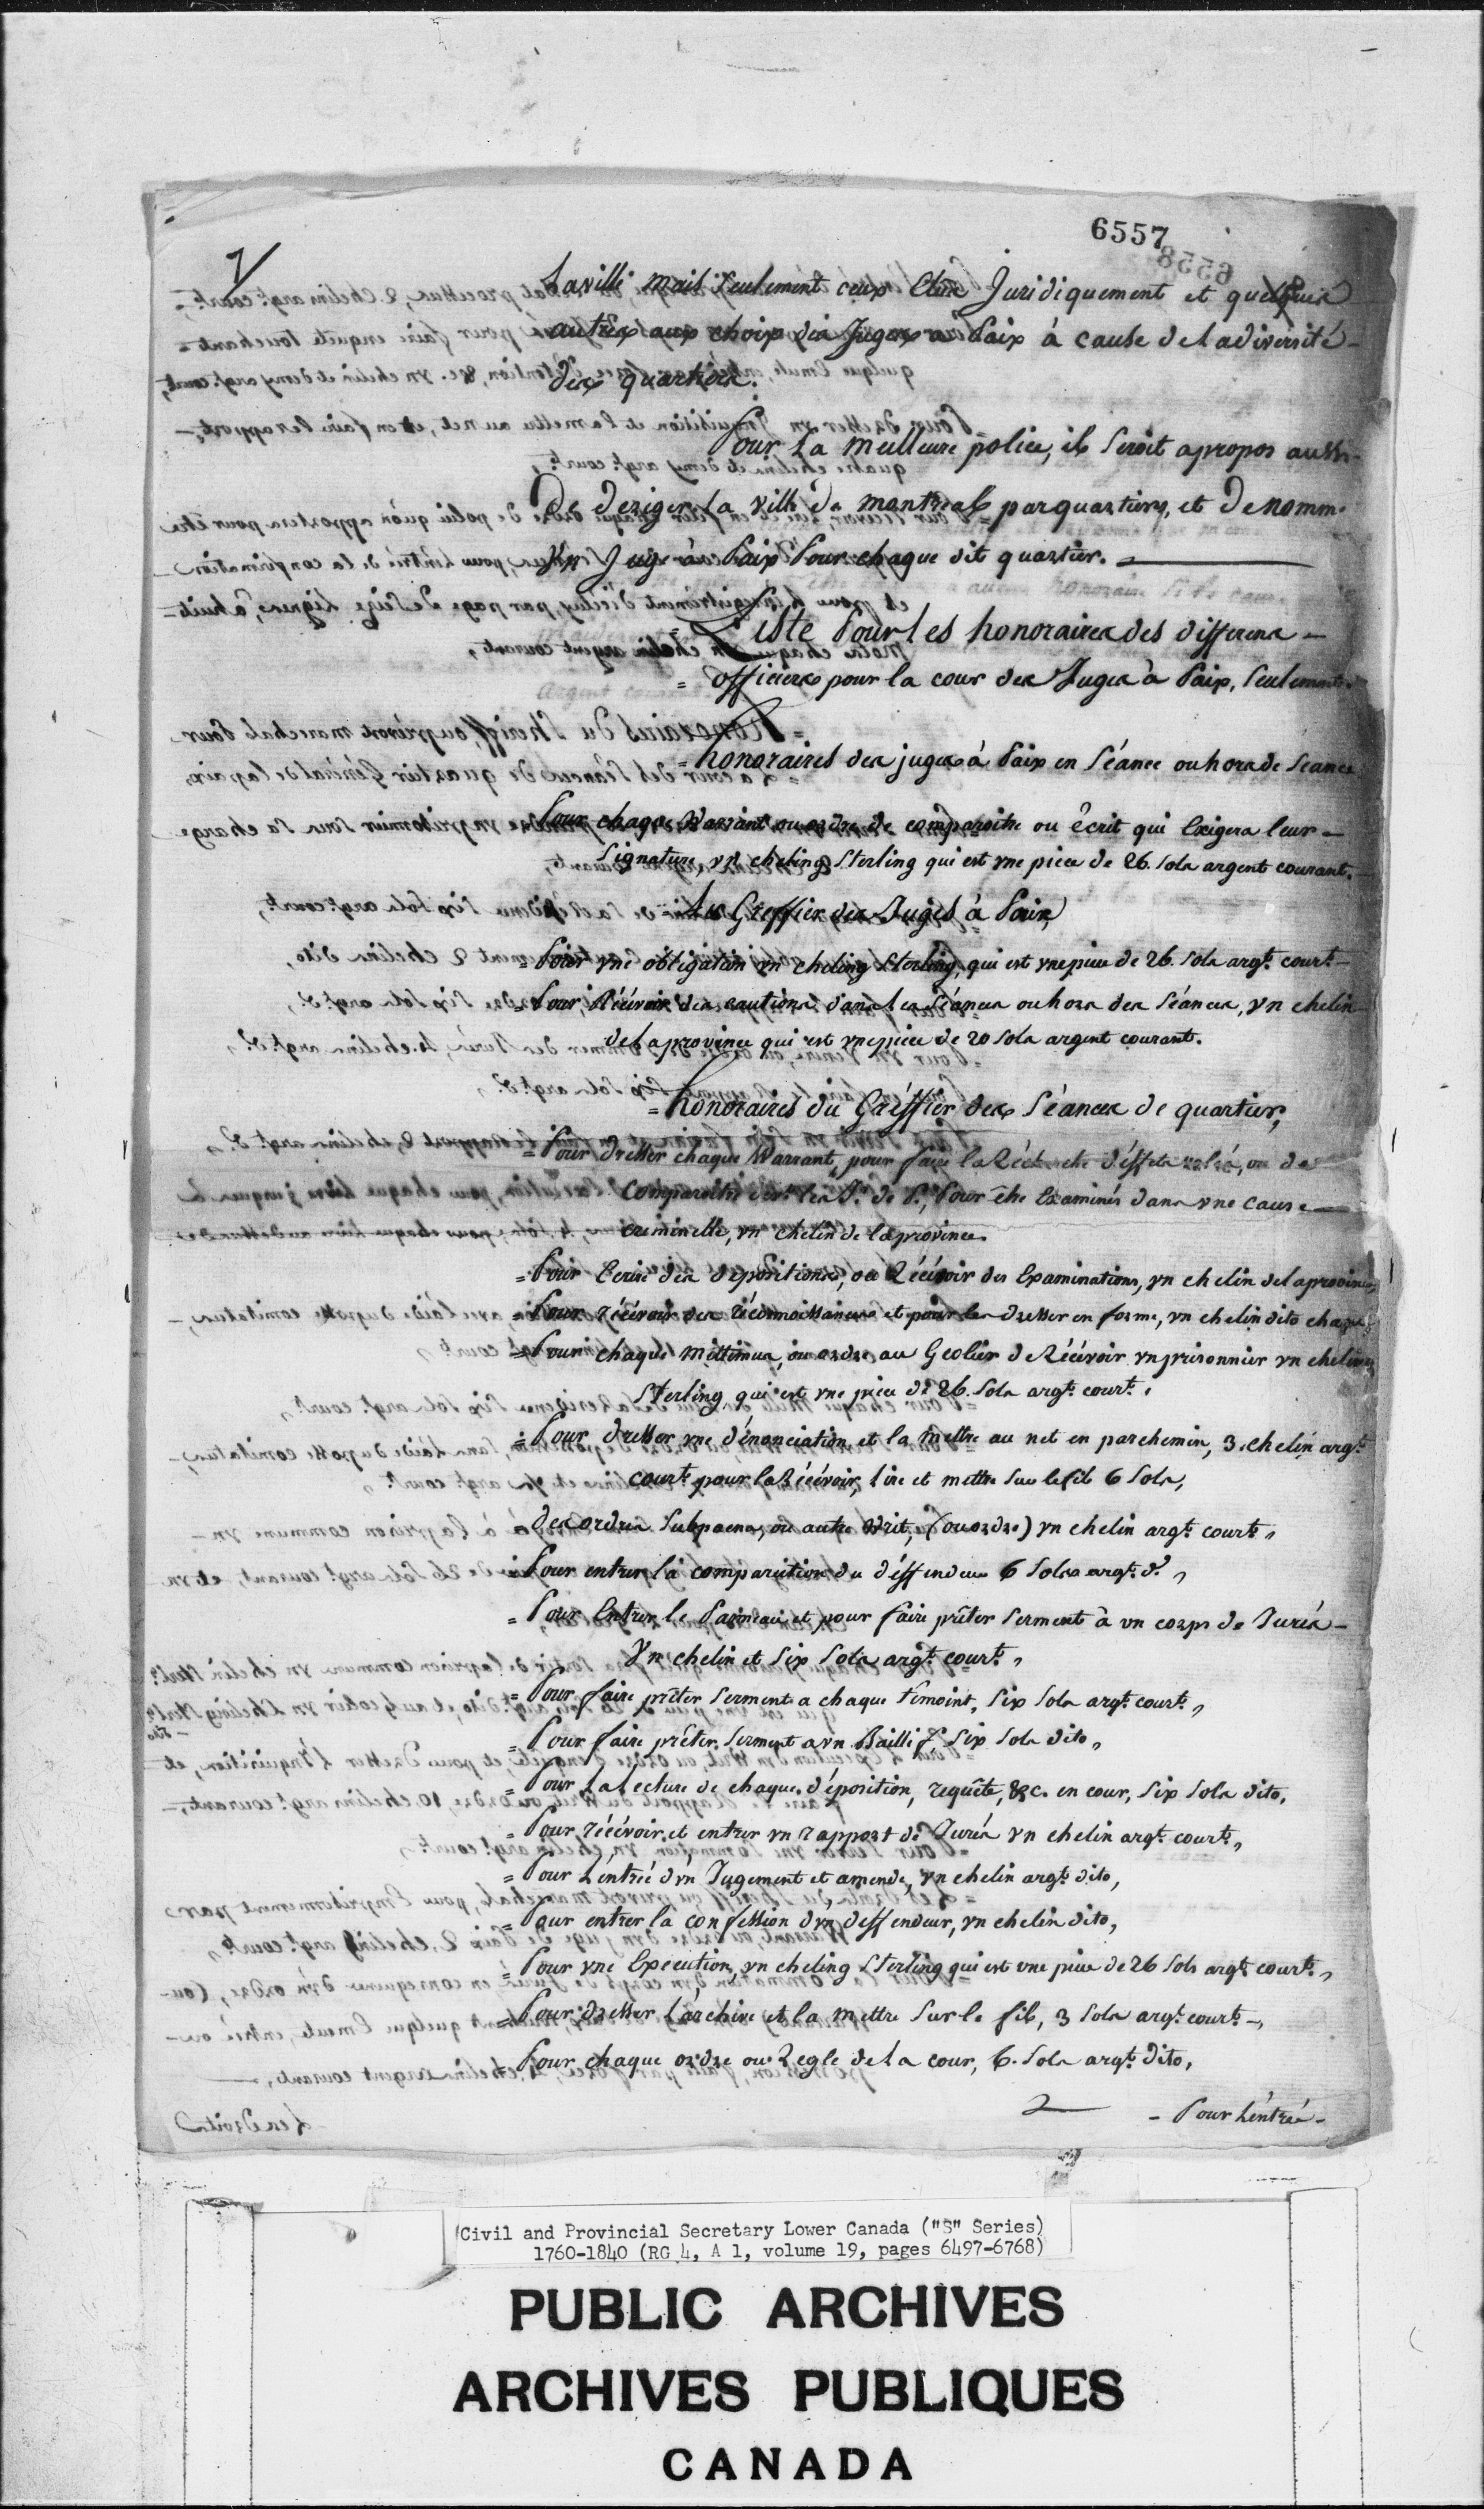 6557
7/
Laville mais seulement ceux Elus Juridiquement et quelques
autres aux choix des Juges a Paix à cause de la diversité
des quartiers.
Pour La meilleure police, il seroit apropos aussi
De deriger La ville de montreal par quartiers, et De nomm
Vn Juge à Paix Pour chaque dit quartier.
Liste Pour les honoraires des differens
= officiers pour la cour des Juges à Paix, seulement
= honoraires des juges à Paix en Séance ou hors de séance
Pour chaque Warrant ou ordre de comparoitre ou écrit qui Exigera leur
Signature, vn cheling Sterling qui est vne piece de 26. sols argent courant.
Les Greffier des Juges à Paix,
= Pour vne obligation vn cheling Sterling, qui est vne piece de 26. sols argt. court.
= Pour Récévoir des cautions dans les Séances ou hors des séances, vn chelin
de la province qui est vne piece de 20 sols argent courant.
= honoraires du Gréffier des Séances de quartier,
= Pour dresser chaque Warrant, pour faire la Réch che d'éffets volés, ou de
Comparoitre devt. les J. de P., Pour être Examinés dans vne cause
criminelle, vn chelin de la province
= Pour Ecrire des dépositions, ou Récévoir des Examinations, vn chelin de la province
= Pour récévoir des récônnoissances et pour les dresser en forme, vn chelin dito chaque
= Pour chaque mittimus, ou ordre au Geolier de Récévoir vn prisonnier vn cheling
Sterling qui est vne piece de 26. sols argt. court.
= Pour dresser vne dénonciation et la mettre au net en parchemin, 3. chelin argt.
court. pour la Récévoir, lire et mettre sur le fil 6 sols,
des ordres Subpaena, ou autre Writ, (ou ordre) vn chelin argt. court.,
= Pour entrer la comparution du d'éffendeur 6 sols argt. d.,
= Pour Entrer le Panneau et pour faire prêter serment à vn corps de Jurés
Vn chelin et six sols argt. court.,
= Pour faire prêter serment a chaque témoint, six sols argt. court.,
= Pour faire prêter serment a vn Bailli six sols dito,
= Pour La Lecture de chaque d'éposition, requête, &c. en cour, six sols dito,
= Pour récévoir et entrer vn rapport de Jurés vn chelin argt. court.,
= Pour L'éntrée d'vn Jugement et amende, vn chelin argt. dito,
= Pour entrer la confession d'vn deffendeur, vn chelin dito,
= Pour vne Execution, vn cheling Sterling qui est vne piece de 26 sols argt. court.,
= Pour dresser L'archive et la mettre sur le fil, 3 sols argt. court.,
= Pour chaque ordre ou Regle de la cour, 6. sols argt. dito,
- Pour L'éntrée -
Civil and Provincial Secretary Lower Canada ("S" Series)
1760-1840 (RG 4, A 1, volume 19, pages 6497-6768)
PUBLIC ARCHIVES
ARCHIVES PUBLIQUES
CANADA